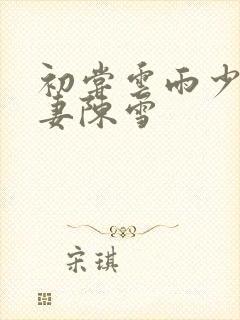 初尝雲雨少
妻陳雪
宋琪